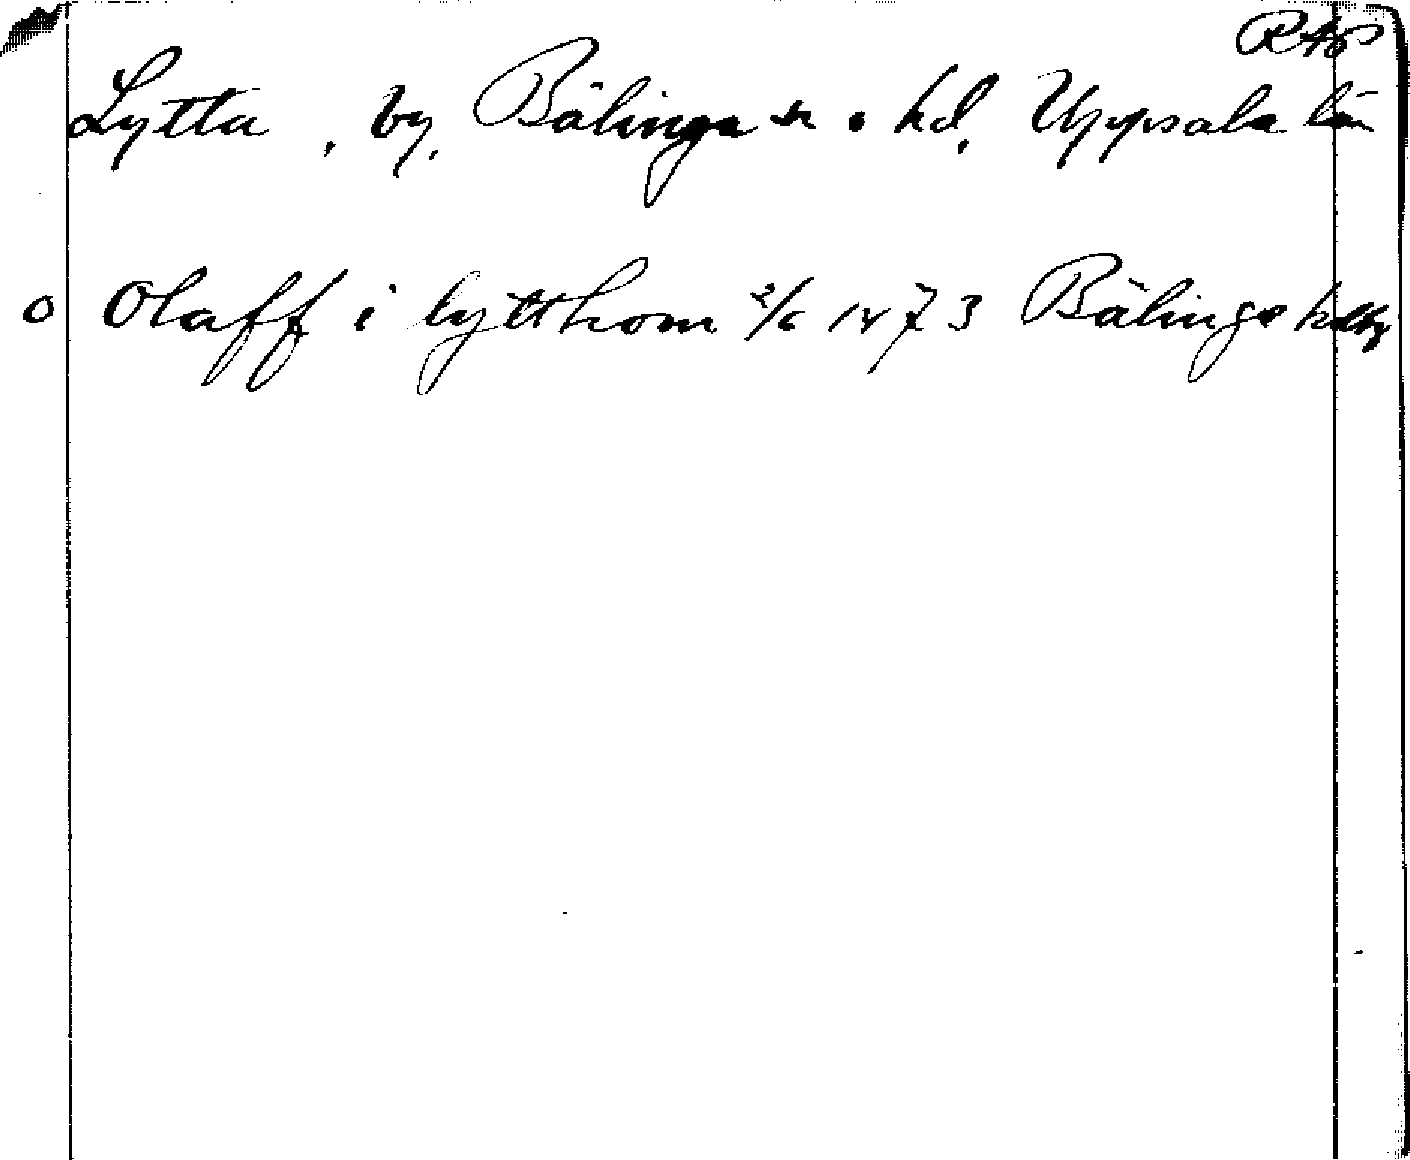 Lytta, by, Bälinge sn o hd, Uppsala län
o Olaff i lytthom 2/6 1473 Bälinge hdby